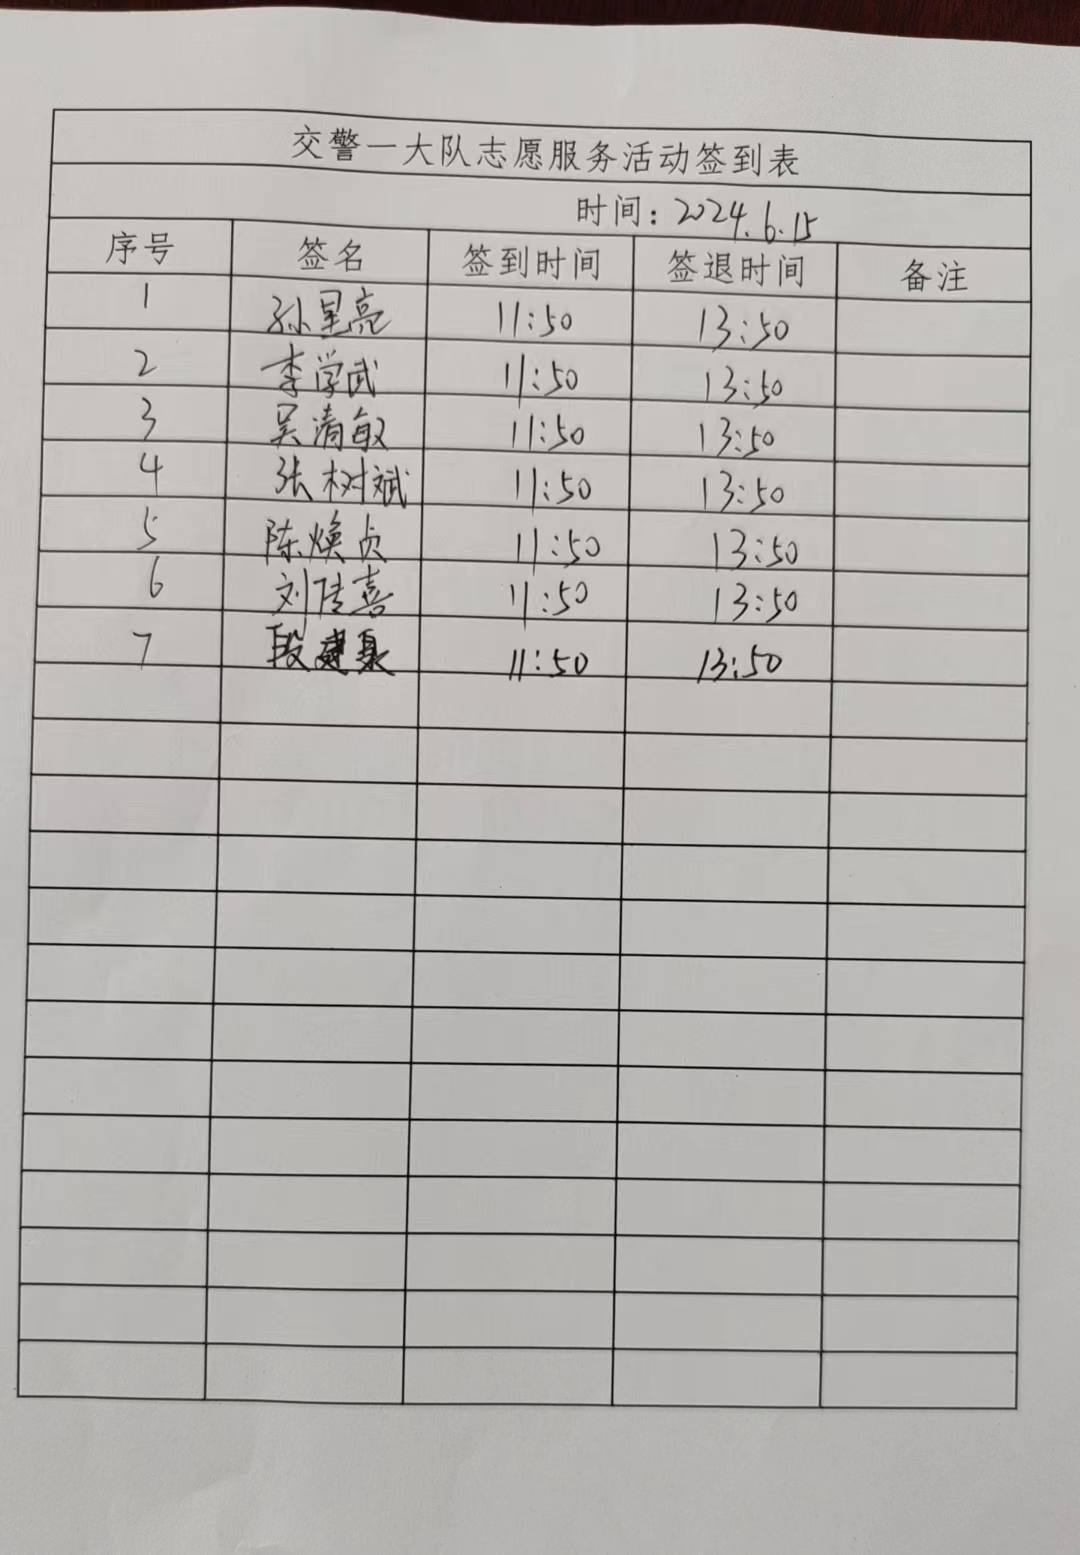 交警一大队志愿服务活动签到表
时间：2024.6.15
序号 签名 签到时间 签退时间 备注
1 孙星亮 11:50 13:50
2 李学武 11:50 13:50
3 吴清敏 11:50 13:50
4 张树斌 11:50 13:50
5 陈焕贞 11:50 13:50
6 刘佳喜 11:50 13:50
7 段建 11:50 13:50